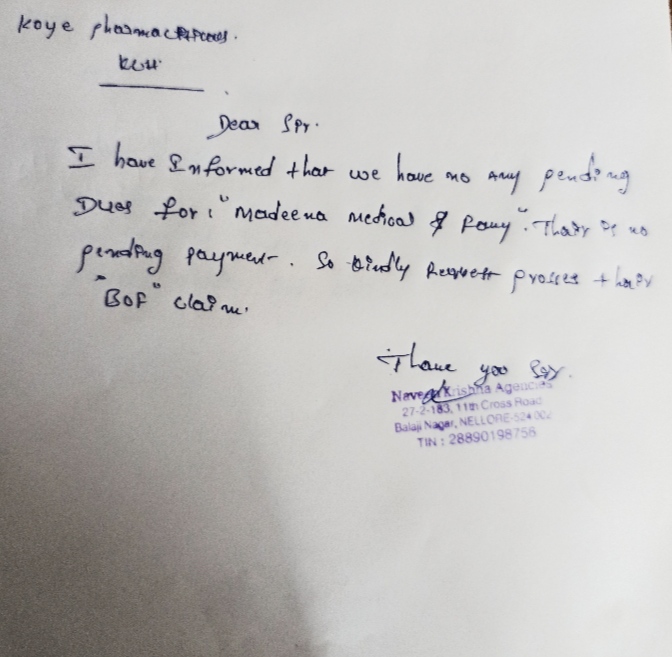 Koye pharmaceuticals.
Dear Sir.
I have Informed that we have no any pending
Dues for "Madeena Medical & Fancy". Thair is no
pending payment. So kindly Request prosses thair
"BOF" claim.
Thank you Sir.
Naveen Krishna Agencies
27-2-183, 11th Cross Road
Balaji Nagar, NELLORE-524 002
TIN : 28890198758